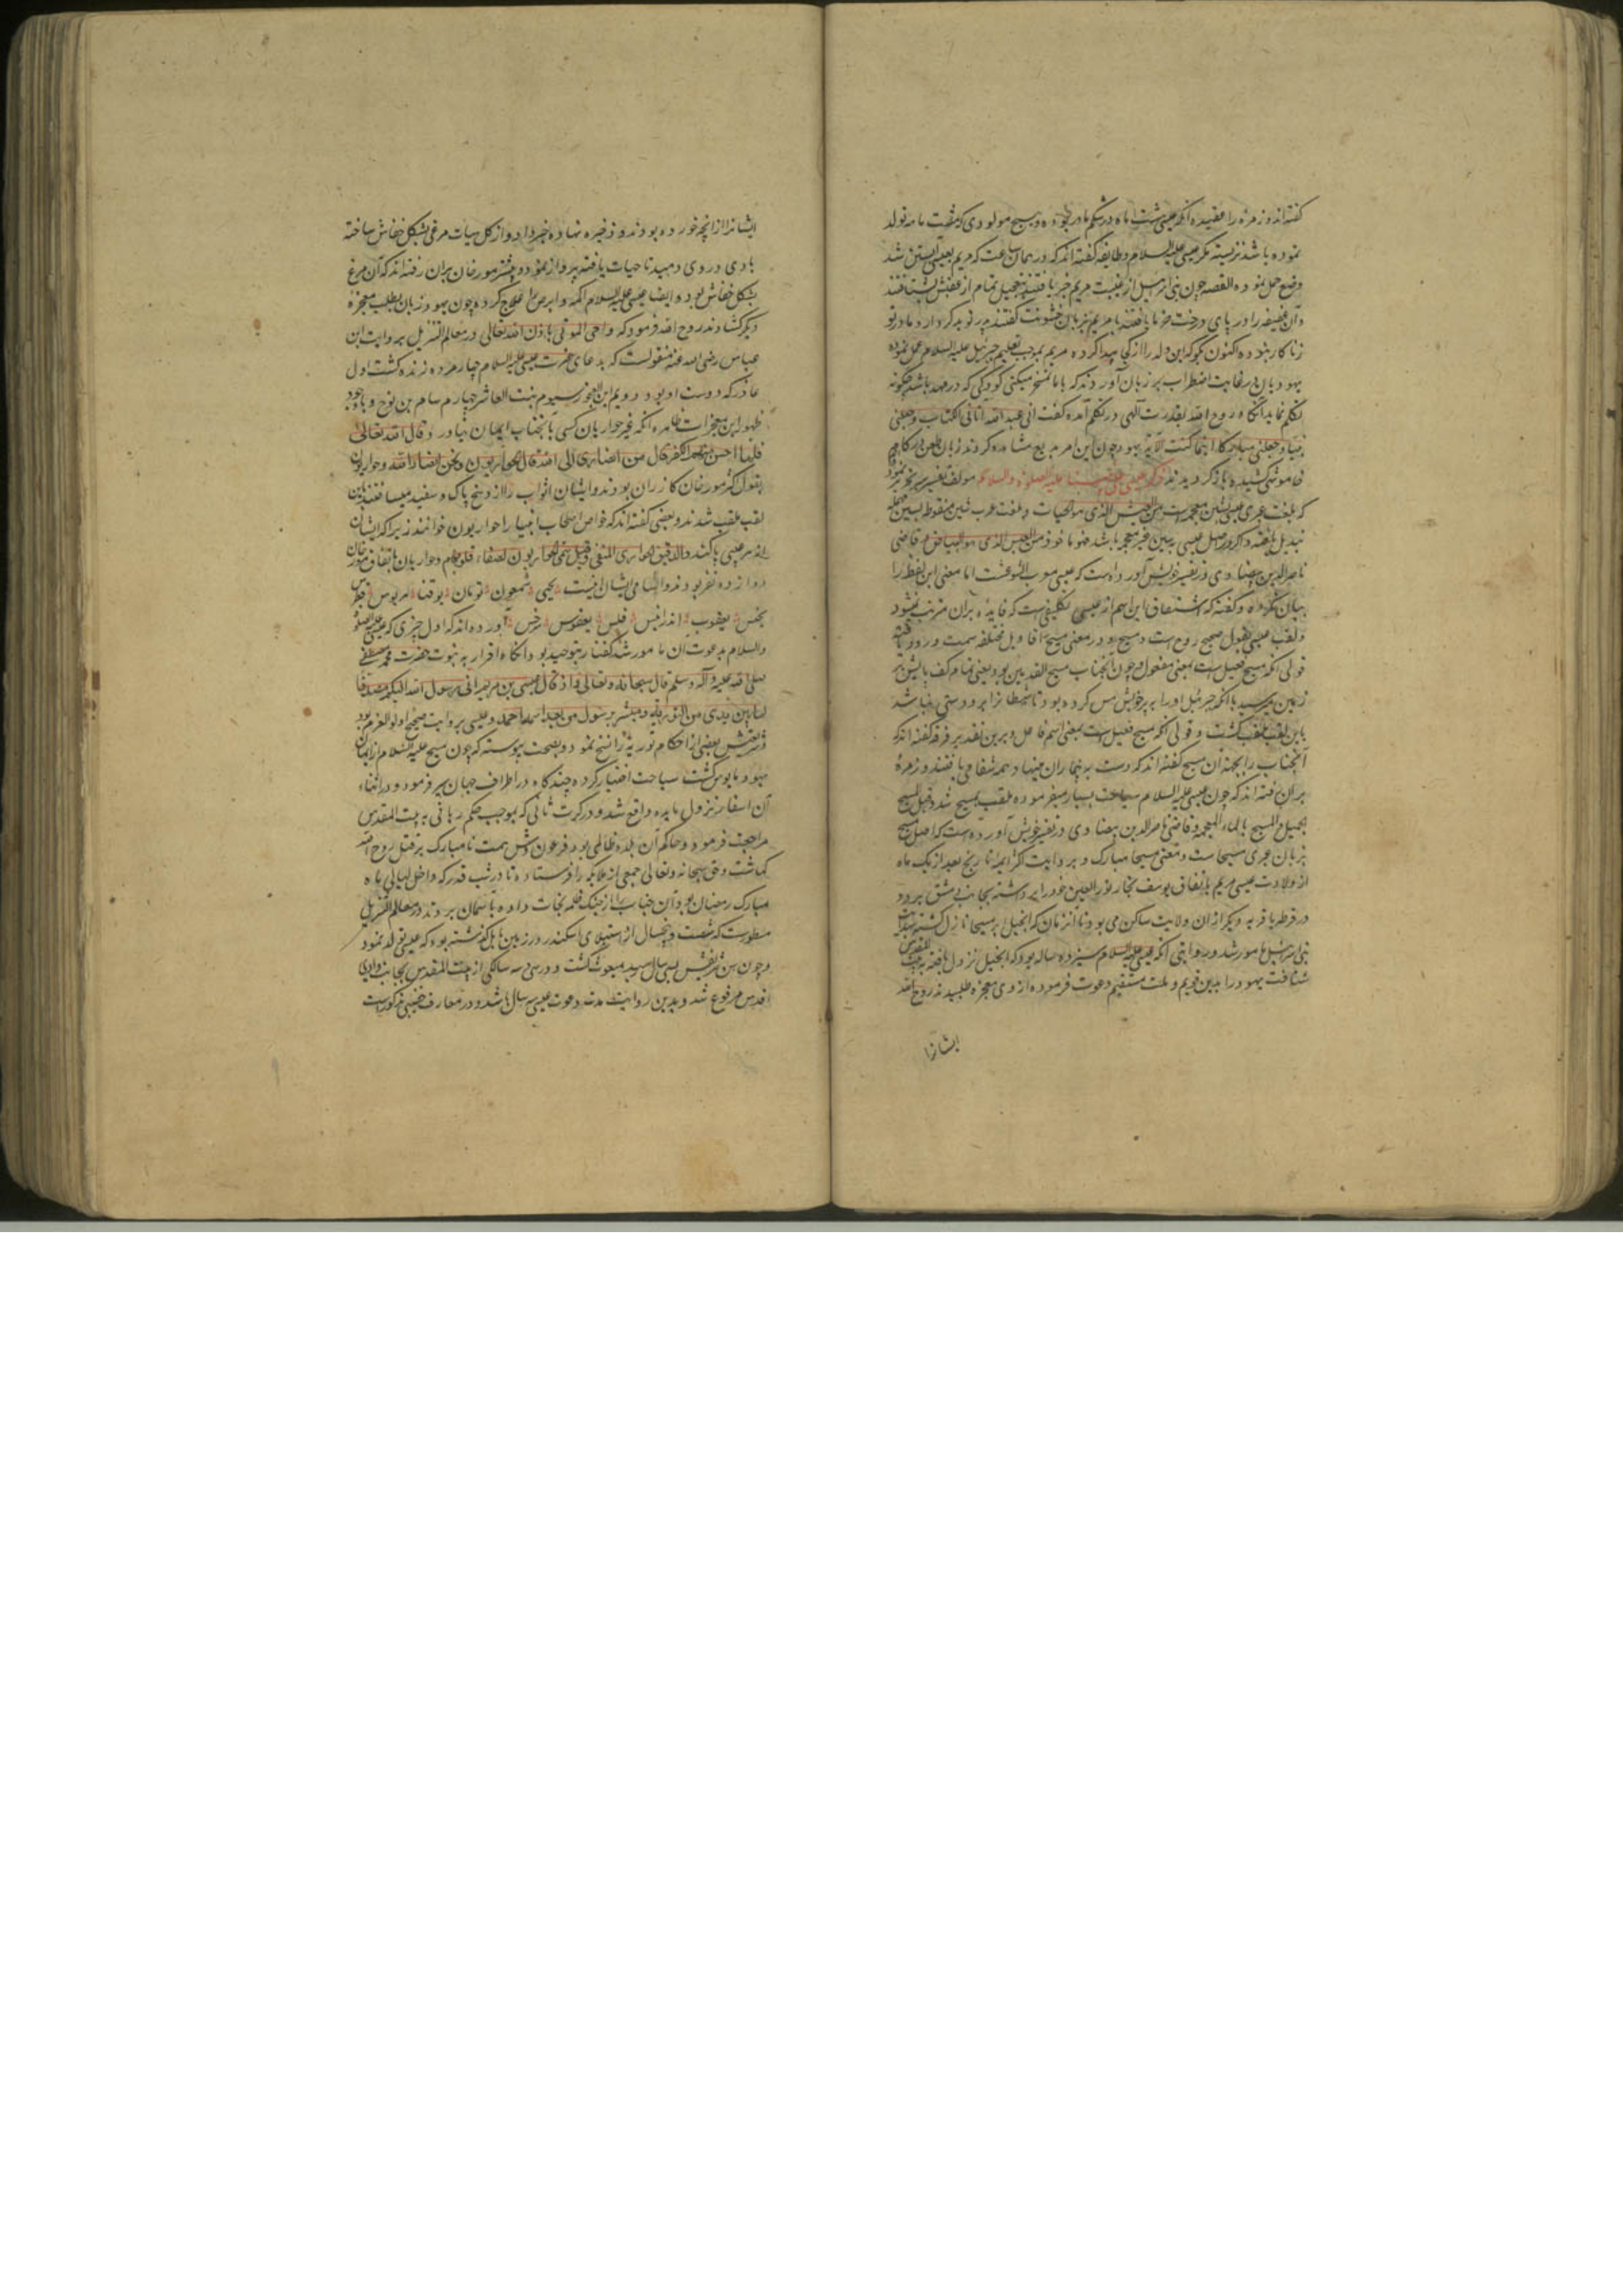 گفته‌اند و زمره را عقیده آنکه عیسی هشت ماه در شکم مادر بوده و هیچ مولودی که هشت ماهه تولد
نموده باشد نزیسته مگر عیسی علیه السلام و طایفه گفته‌اند که در همان ساعت که مریم بعیسی آبستن شد
وضع حمل نموده القصه چون بنی اسرائیل از غیبت مریم خبر یافتند بتعجیل تمام از عقبش بشتافتند
و آن عفیفه را در پای درخت خرما یافتند با مریم بزبان خشونت گفتند پدر تو بدکردار و مادر تو
زناکار نبوده اکنون بگو که این ولد را از کجا پیدا کرده مریم بموجب تعلیم جبرئیل علیه السلام عمل نموده
یهودیان در غایت اضطراب بر زبان آوردند که با ما تمسخر میکنی کودکی که در مهد باشد چگونه
تکلم نماید آنگاه روح الله بقدرت الهی در تکلم آمده گفت انی عبد الله آتانی الکتاب و جعلنی
نبیا و جعلنی مبارکا اینما کنت الآیه یهود چون این امر بدیع مشاهده کردند زبان طعن در کام
خاموشی کشیده بازگردیدند ذکر علیه الصلوة والسلام مولف تفسیر
که بلغت عبری عیسی بشین معجمه است من العیش الذی هو الحیات و بلغت عرب شین منقوطه بسین مهمله
تبدیل یافته و اگر در اصل عیسی بسین غیر معجمه باشد هو ماخوذ من العیس الذی هو البیاض و قاضی
ناصر الدین بیضاوی در تفسیر خویش آورده است که عیسی معرب ایشوعست اما معنی این لفظ را
بیان نکرده و گفته که اشتقاق این اسم از عیس تکلیفی است که فایده بر آن مترتب نمیشود
و لقب عیسی بقول صحیح روح است و مسیح و در معنی مسیح اقاویل مختلفه سمت ورود یافته
قولی آنکه مسیح فعیل است بمعنی مفعول و چون آنجناب مسیح القدمین بود یعنی تمام کف پایش بر
زمین میرسید یا آنکه جبرئیل او را بپر خویش مس کرده بود تا شیطان را بر وی دستی نباشد
باین لقب ملقب گشت و قولی آنکه مسیح فعیل است بمعنی اسم فاعل و برین تقدیر فرقه گفته‌اند که
آنجناب را بجهة آن مسیح گفته‌اند که دست به بیماران مینهاد همه شفا می یافتند و زمرهٔ
بر آن رفته‌اند که چون عیسی علیه السلام سیاحت بسیار میفرموده ملقب بمسیح شد و قیل المسیح
الجمیل و المسیح بالخاء المعجمه و قاضی ناصر الدین بیضاوی در تفسیر خویش آورده است که اصل مسیح
بزبان عبری مسیحا است و معنی مسیحا مبارک و بروایت اکثر ایمه تاریخ بعد از یک ماه
از ولادت عیسی مریم باتفاق یوسف نجار نور العین خود را برداشته بجانب دمشق برد و
در قریه دیگر از آن ولایت ساکن می بود تا آن زمان که انجیل بر مسیحا نازل گشته بهدایت
بنی اسرائیل مامور شد و روایتی آنکه عیسی علیه السلام سیزده ساله بود که انجیل نزول یافته به بیت المقدس
شتافت یهود را بدین قویم و ملت مستقیم دعوت فرموده از وی معجزه طلبیدند روح الله
ایشانرا
ایشانرا از آنچه خورده بودند و ذخیره نهاده خبر داد و از گل هیات مرغی بشکل خفاش ساخته
بادی در وی دمید تا حیات یافته پرواز نمود و بیشتر مورخان بر آن رفته‌اند که آن مرغ
بشکل خفاش بود و ایضا عیسی علیه السلام اکمه و ابرص را علاج کرده و چون یهود زبان بطلب معجزه
دیگر گشادند روح الله فرمود که و احی الموتی باذن الله تعالی و در معالم التنزیل بروایت ابن
عباس رضی الله عنه منقولست که بدعای حضرت عیسی علیه السلام چهار مرده زنده گشت اول
عاذر که دوست او بود دویم ابن العجوز سیوم بنت العاشر چهارم سام بن نوح و باوجود
ظهور این معجزات ظاهره آنکه غیر حواریان کسی بآنجناب ایمان نیاورد قال الله تعالی
فلما احس منهم الکفر قال من انصاری الی الله قال الحواریون نحن انصار الله و حواریون
بقول اکثر مورخان کازران بودند و ایشان اثواب را از وسخ پاک و سفید میساختند باین
لقب ملقب شدند و بعضی گفته‌اند که خواص اصحاب انبیا را حواریون خوانند زیرا که ایشان
از هر عیبی پاکند و الدقیق الحواری المنقی و قیل سمی الحواریون لصفاء قلوبهم و حواریان باتفاق مورخان
دوازده نفر بودند و اسامی ایشان اینست یحیی شمعون تومان یوقنا مریوس فطرس
یحنس یعقوب اندرانیس فیلس یعقوبس سرجس آورده‌اند که اول چیزی که عیسی علیه الصلوة
والسلام بدعوت آن مامور شد گفتار بتوحید بود و آنگاه اقرار به نبوت حضرت محمد مصطفی
صلی الله علیه و آله و سلم قال سبحانه و تعالی و اذ قال عیسی بن مریم انی رسول الله الیکم مصدقا
لما بین یدی من التوریة و مبشرا برسول من بعد اسمه احمد و عیسی بروایت صحیح اولو العزم بود
و شریعتش بعضی از احکام توریة را نسخ نمود و بصحت پیوسته که چون مسیح علیه السلام از ایمان
یهود مایوس گشت سیاحت اختیار کرده چندگاه در اطراف جهان سیر فرمود و در اثناء
آن اسفار نزول مایده واقع شد و در کرت ثانی که بموجب حکم ربانی به بیت المقدس
مراجعت فرمود و حاکم آن بلده ظالمی بود فرعون وش همت نامبارک بر قتل روح الله
گماشت و حق سبحانه و تعالی جمعی از ملایکه را فرستاده تا در شب قدر که داخل لیالی ماه
مبارک رمضان بود آن جناب را از چنگ ظلمه نجات داده بآسمان بردند در معالم التنزیل
مسطورست که شصت و پنجسال از استیلای اسکندر در زمین بابل گذشته بود که عیسی تولد نمود
و چون سن شریفش بسی سال رسید مبعوث گشت و در سی و سه سالگی از بیت المقدس بجانب وادی
اقدس مرفوع شد و بدین روایت مدت دعوت عیسی سه سال باشد و در معارف مذکورست